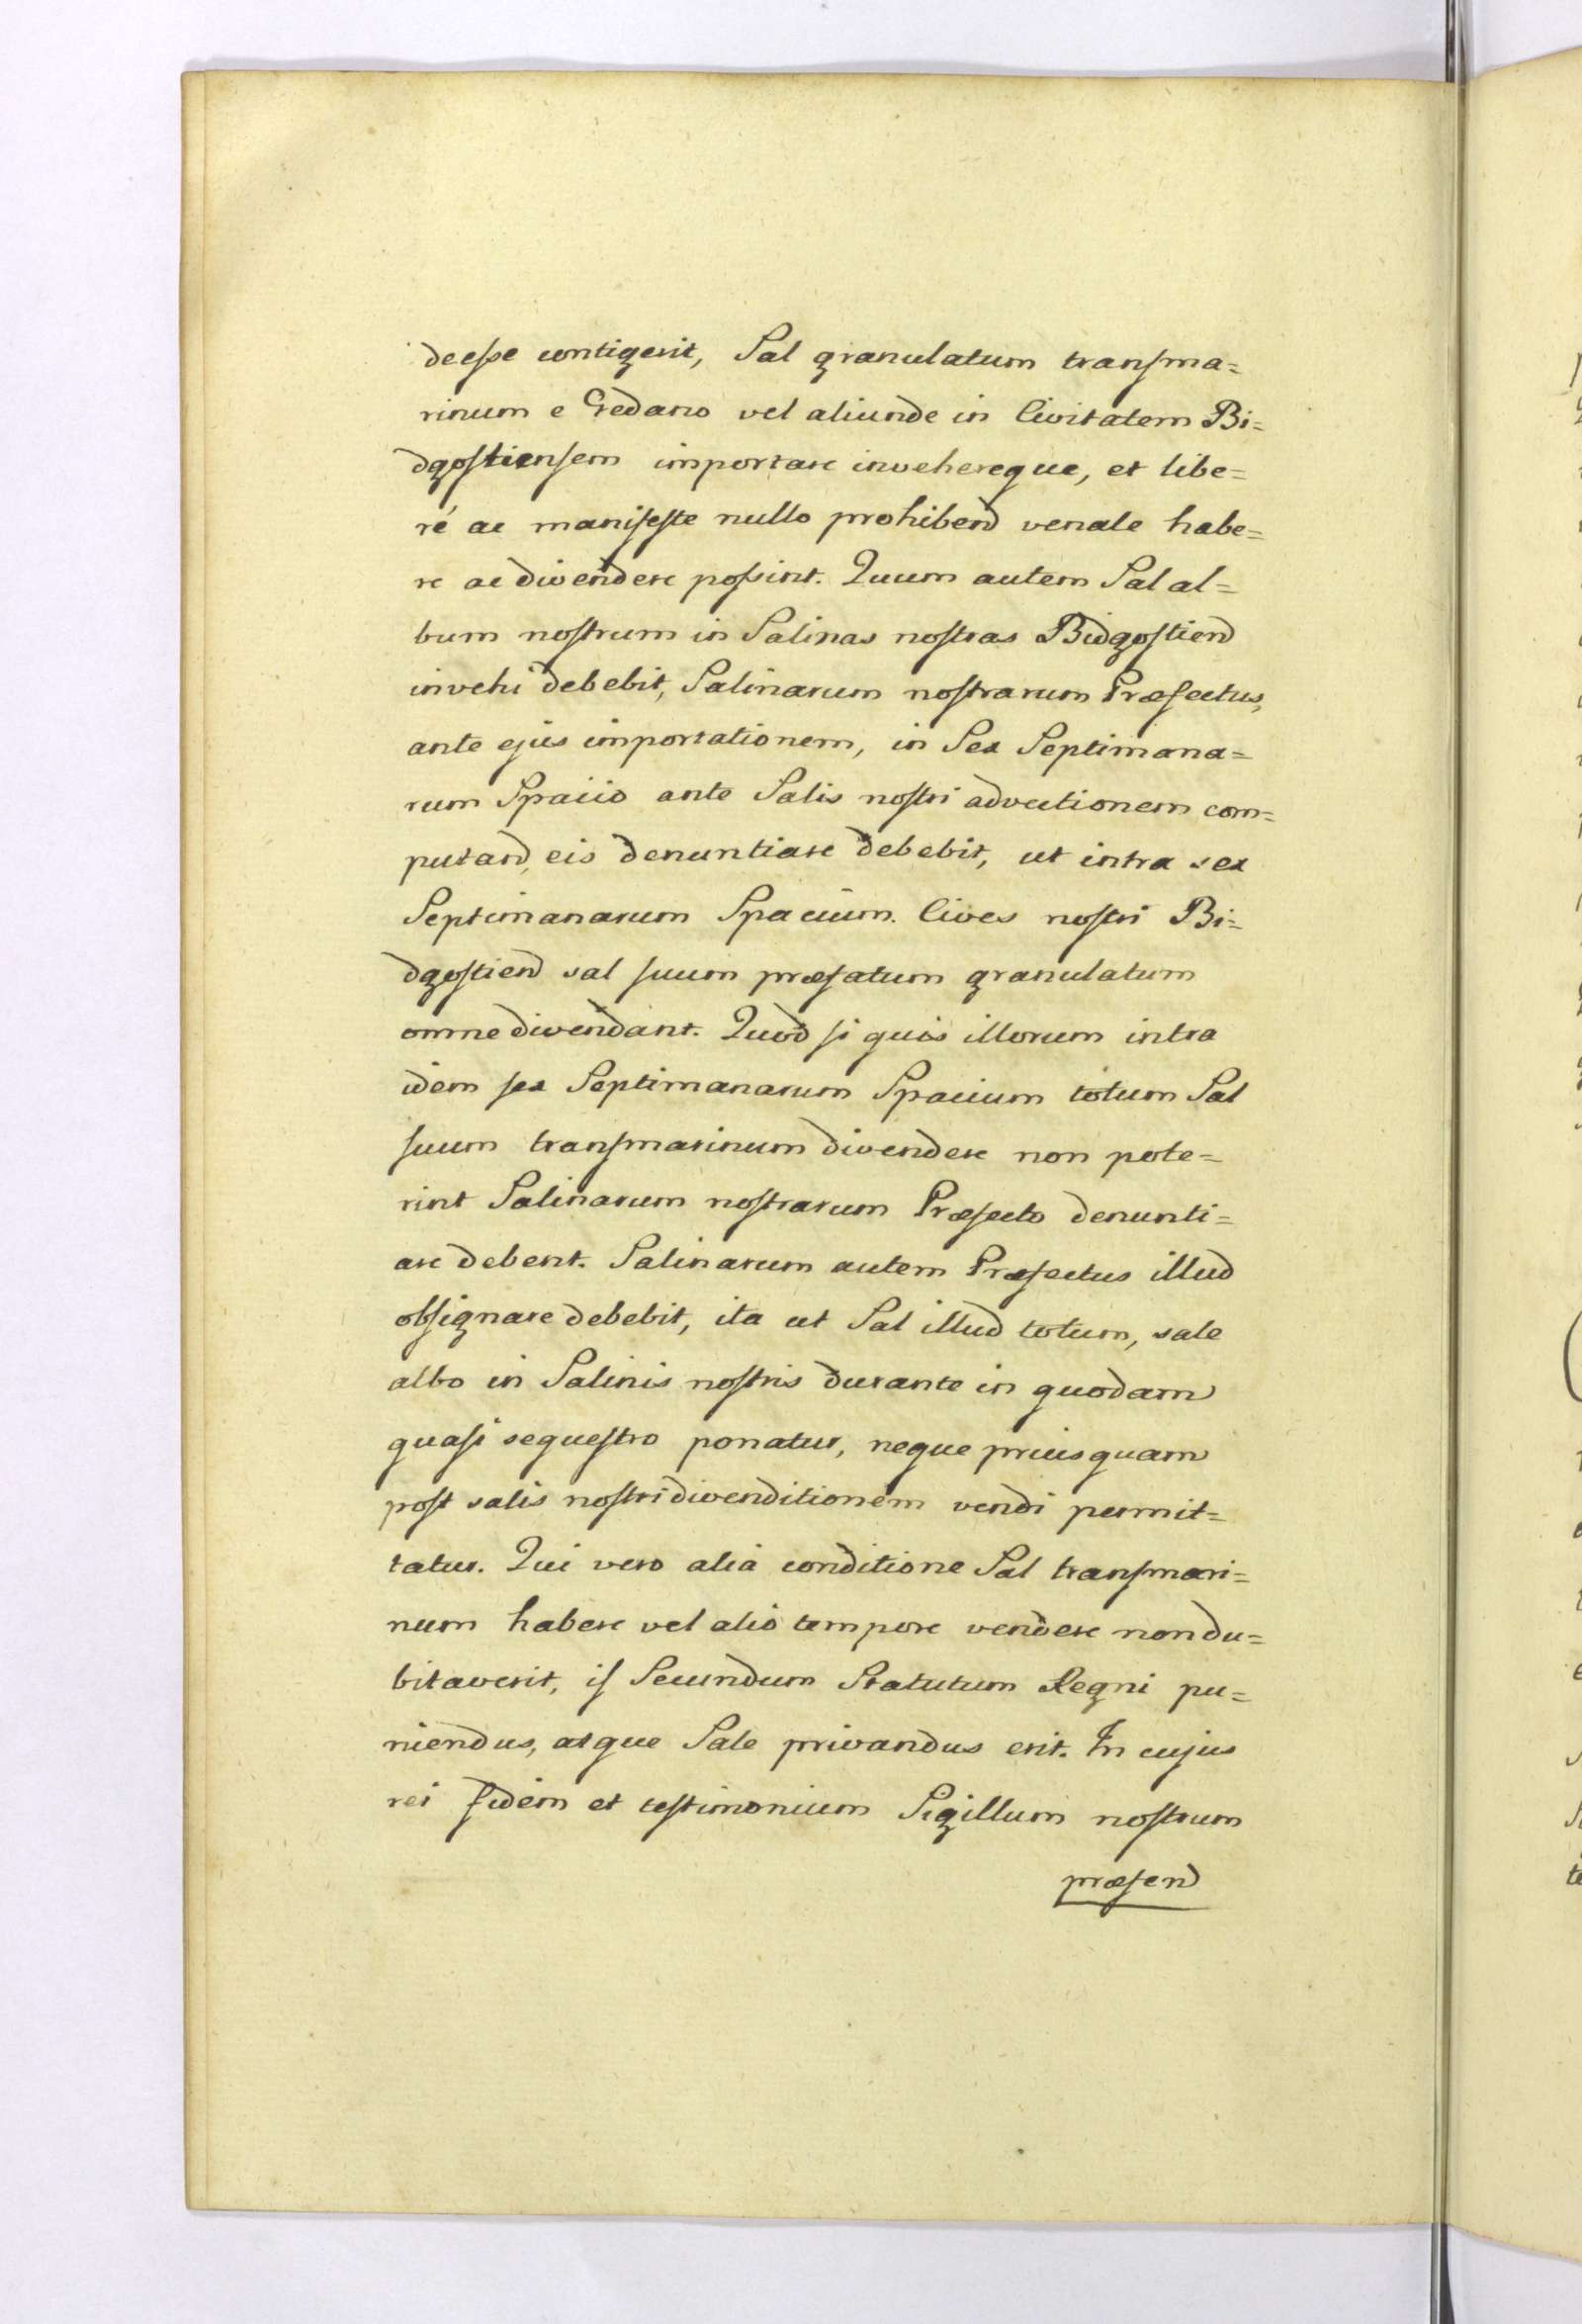 deeſse contigerit, Sal granulatum tranſma=
rinum e Gedano vel aliunde in Civitatem Bi=
dgoſtienſem importare invehereque, et libe=
ré ac manifeſte nullo prohibend venale habe=
re ac divendere poſsint. Quum autem Sal al=
bum noſtrum in Salinas noſtras Bidgoſtiend
invehi debebit, Salinarum noſtrarum Præfectus,
ante ejus importationem, in Sex Septimana=
rum Spacio ante Salis noſtri advectionem com=
putand, eis denuntiare debebit, ut intra sex
Septimanarum Spacium. Cives noſtri Bi=
dgoſtiend sal ſuum præfatum granulatum
omne divendant. Quod ſi quis illorum intra
idem ſex Septimanarum Spacium totum Sal
ſuum tranſmarinum divendere non pote=
rint Salinarum noſtrarum Præfecto denunti=
are debent. Salinarum autem Præfectus illud
obſignare debebit, ita ut Sal illud totum, sale
albo in Salinis noſtris durante in quodam
quaſi sequeſtro ponatur, neque priusquam
post salis noſtri divenditionem vendi permit=
tatur. Qui vero aliá conditione Sal tranſmari=
num habere vel alio tempore vendere non du=
bitaverit, iſ Secundum Statutum Regni pu=
niendus, atque Sale privandus erit. In cujus
rei fidem et teſtimonium Sigillum noſtrum
præſend